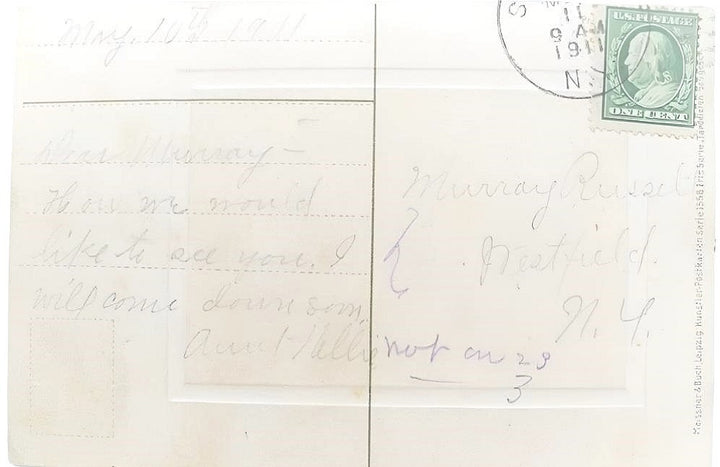 May. 10th 1911
Dear Murray —
How we would
like to see you. I
will come down soon.
Aunt Nellie
11
9 AM
1911
N
U.S. POSTAGE
ONE CENT
Murray Russel
Westfield.
N. Y.
not on 23
3
Meissner & Buch Leipzig. Künstler-Postkarten Serie 1558